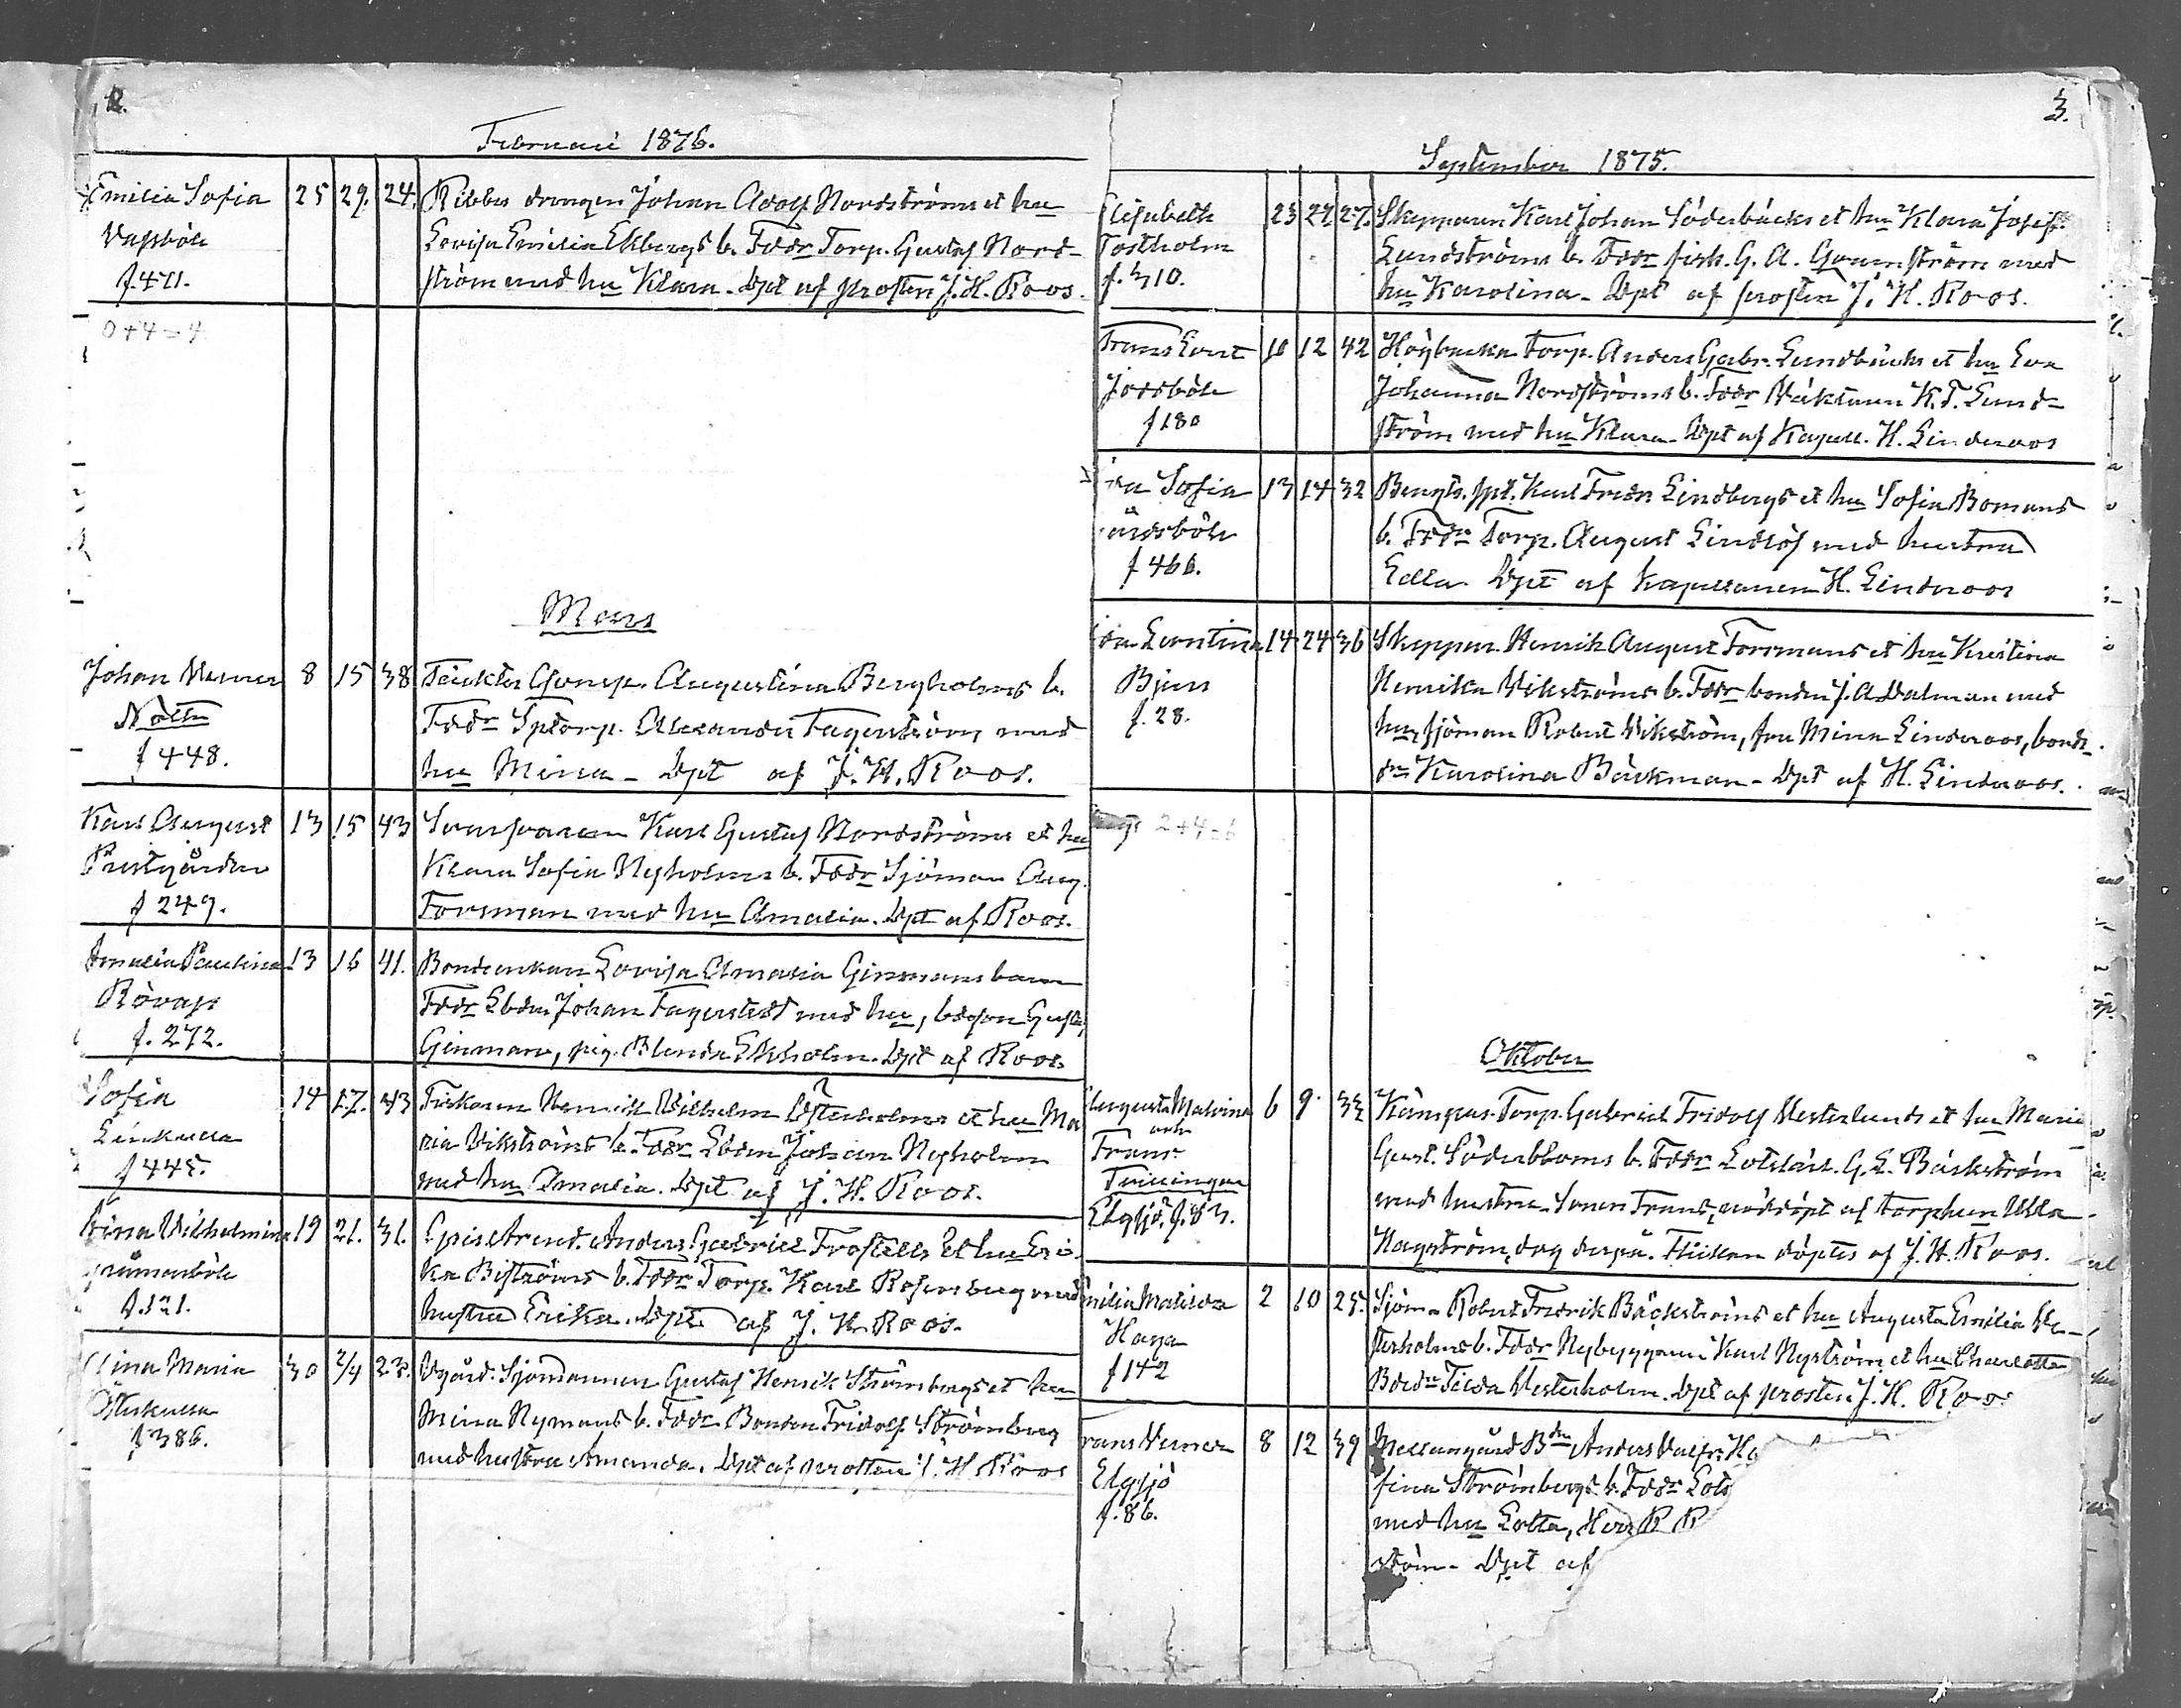 2.
Februari 1876.
Emilia Sofia 25 29. 24. Ribbes drängen Johan Adolf Nordströms et hu
Vessböle Lovisa Emilia Ekbergs b. Fddr Torp. Gustaf Nord-
f. 471. ström med hu Klara. Dpt af prosten J. H. Roos.
0+4=4
Mars
Johan Verner 8 15 38 Augustina Bergholms b.
Nötö Fddr Sptorp. Alexander Fagerström med
f 448. hu Mina - Dpt af J. H. Roos.
Karl August 13 15 43 Karl Gustaf Nordströms et hu
Prestgården Klara Sofia Nyholms b. Fddr Sjöman Aug.
f 249. Forsman med hu Amalia. Dpt af Roos.
Amalia Paulina 13 16 41. Bondeenkan Lovisa Amalia Ginmans barn
Rövass Fddr Johan Fagerstedt med hu, bdeson Gust.
f. 272. Ginman, pig. Blenda Ekholm. Dpt af Roos.
Sofia 14 17. 43 Fiskaren Henrik Vilhelm Österholms et hu Ma
Linkulla ria Vikströms b. Fddr Johan Nyholm
f 445. med hu Amalia. Dpt af J. H. Roos.
Vilhelmina 19 21. 31. Anders Gabriel Frostells et hu Eri-
ka Biströms b. Fddr Torp. Karl Rosenberg med
f. 121. hustru Erika. Dpt af J. H. Roos.
Maria 30 2/4 23. Sjömannen Gustaf Henrik Strömbergs et hu
Österkulla Mina Nymans b. Fddr Bonden Fridolf Strömberg
f 386. med hustru Amanda. Dpt af prosten J. H. Roos
3.
September 1875.
Elisabeth 23 27 27. Skepparen Karl Johan Söderbäcks et hu Klara Josef.
Tostholm Lundströms b. Fddr fisk. G. A. Grannström med
f. 310. hu Karolina - Dpt af prosten J. H. Roos.
Frans Evert 10 12 42 Högbacka torp. Anders Gabr. Lundbäcks et hu Eva
Jordböle Johanna Nordströms b. Fddr K. F. Lund-
f 180 ström med hu Klara. Dpt af Kapell. H. Linderoos
Sofia 13 14 32 Karl Fredr Lindbergs et hu Sofia Bomans
b. Fddr Torp. August Lindlöf med hustru
f 466. Edla. Dpt af kapellanen H. Linderoos
Leontina 14 24 36 Skeppar. Henrik August Forsmans et hu Kristina
Bjens Henrika Vikströms b. Fddr bonden J. A. Dalman med
f. 28. hu, sjöman Robert Vikström, fru Mina Linderoos, bond-
Karolina Bäckman - Dpt af H. Linderoos.
2+4=6
Oktober
Augusta Malvina 6 9. 33 Kämpas Torp. Gabriel Fridolf Vesterlunds et hu Maria
och
Frans Gust. Söderbloms b. Fddr Lotslärl. G. E. Bäckström
Tvillingar med hustru. Sonen Frans, nöddöpt af torphun Ulla
Elgsjö, f. 83. Hagström, dog derpå. Flickan döptes af J. H. Roos.
Emilia Matilda 2 10 25. Sjöm. Robert Fredrik Bäckströms et hu Augusta Emilia Ve-
Haga sterholms b. Fddr Nybyggaren Karl Nyström et hu Charlotta
f 142 Tilda Vesterholm. Dpt af prosten J. H. Roos
Frans Verner 8 12 39 Mellangård Anders Valfr. Ha
Elgsjö fina Strömbergs b. Fddr Lots
f. 86. med hu Lotta, R
ström - Dpt af